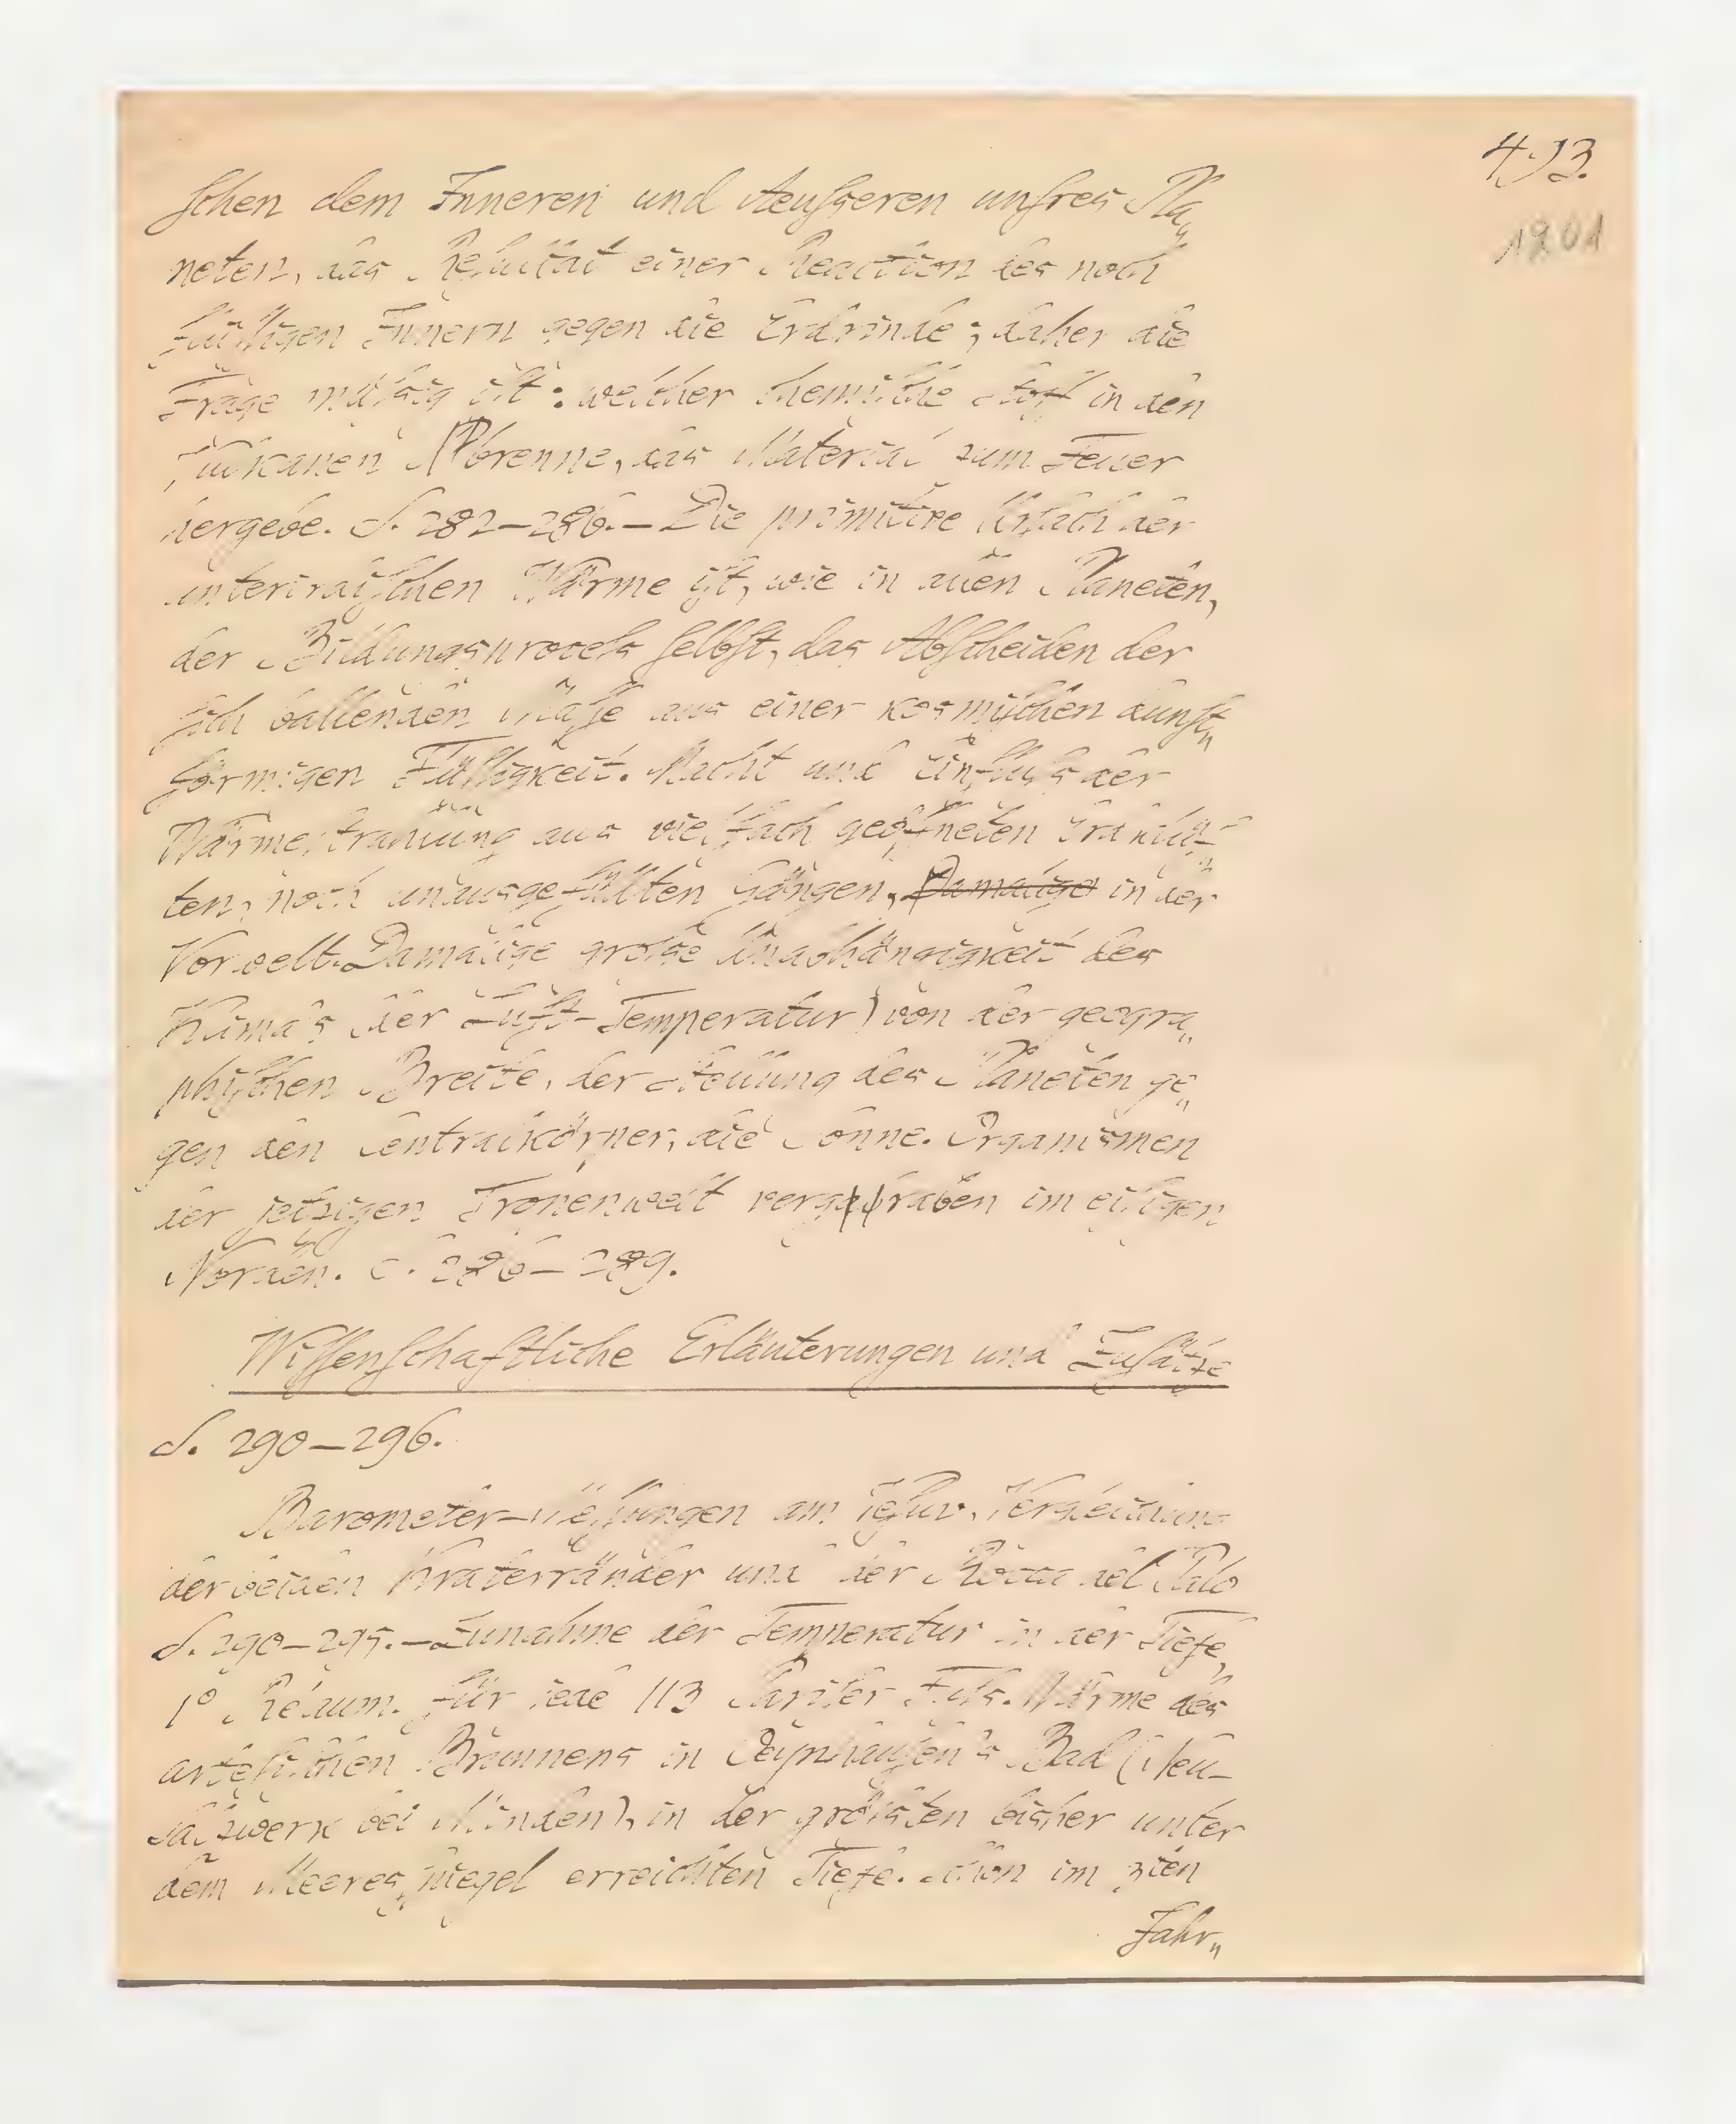 493.
1201
ſchen dem Inneren und Aeuſseren unſres Pla„
neten, das Reſultat einer Reaction des noch
flüſſigen Innern gegen die Erdrinde; daher die
Frage müſsig iſt: welcher chemiſche Stoff in den
Vulkanen brenne, das Material zum Feuer
hergebe. S. 282–286. – Die primitive Urſach der
unterirdiſchen Wärme iſt, wie in allen Planeten,
der Bildungsproceſs ſelbſt, das Abſcheiden der
ſich ballenden Maſſe aus einer kosmiſchen dunſt„
förmigen Flüſſigkeit. Macht und Einfluſs der
Wärmeſtrahlung aus vielfach geöffneten Erdklüf-
ten, noch unausgefüllten Gängen, Damalige in der
Vorwelt. Damalige groſse Unabhängigkeit des
Klima's (der Luft-Temperatur) von der geogra„
phiſchen Breite, der Stellung des Planeten ge„
gen den Centralkörper, die Sonne. Organismen
der jetzigen Tropenwelt vergraben im eiſigen
Norden. S. 286–289.
Wiſſenſchaftliche Erläuterungen und Zuſätze
S. 290–296.
Barometer-Meſſungen am Veſuv, Vergleichung
der beiden Kraterränder und der Rocca del Palo
S. 290–295. – Zunahme der Temperatur in der Tiefe,
1° Réaum. für jede 113 Pariſer Fuſs. Wärme des
arteſiſchen Brunnens in Oeynhauſen's Bad (Neu-
ſalzwerk bei Minden), in der gröſsten bisher unter
dem Meeresſpiegel erreichten Tiefe. Schon im 3ten
Jahr„